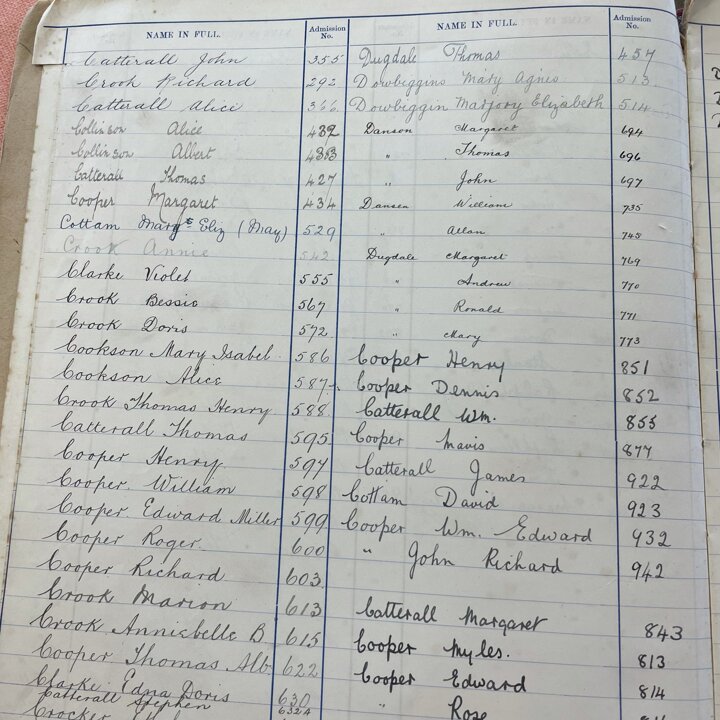 NAME IN FULL. Admission No.
Catterall John 355
Crook Richard 292
Catterall Alice 366
Collinson Alice 432
Collinson Albert 433
Catterall Thomas 427
Cooper Margaret 434
Cottam Margt Eliz (May) 529
Crook Annie 542
Clarke Violet 555
Crook Bessie 567
Crook Doris 572
Cookson Mary Isabel. 586
Cookson Alice 587
Crook Thomas Henry 588
Catterall Thomas 595
Cooper Henry 597
Cooper. William 598
Cooper Edward Miller 599
Cooper Roger. 600
Cooper Richard 603.
Crook Marion 613
Crook Annisbelle B. 615
Cooper Thomas Alb. 622
Clarke Edna Doris 630
Catterall Stephen 632A
Crocker
NAME IN FULL. Admission No.
Dugdale Thomas 457
Dowbiggins Mary Agnes 513
Dowbiggin Marjory Elizabeth 514
Danson Margaret 694
" Thomas 696
" John 697
Danson William 735
" Allan 745
Dugdale Margaret 769
" Andrew 770
" Ronald 771
" Mary 773
Cooper Henry 851
Cooper Dennis 852
Catterall Wm. 855
Cooper Mavis 877
Catterall James 922
Cottam David 923
Cooper Wm. Edward 932
" John Richard 942
Catterall Margaret 843
Cooper Myles. 813
Cooper Edward 814
" Rose